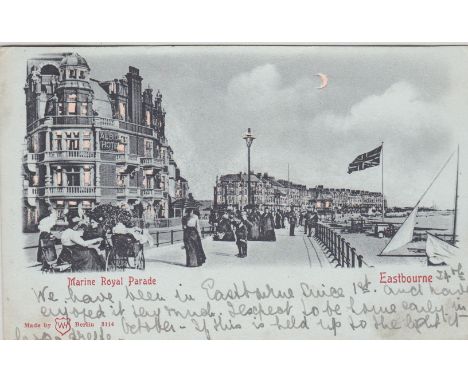 ALBION
HOTEL
Marine Royal Parade
Eastbourne
We have been in Eastbourne since 1st. and have
enjoyed it very much. I expect to be home early in
October - If this is held up to the light it
Made by W Berlin 3114